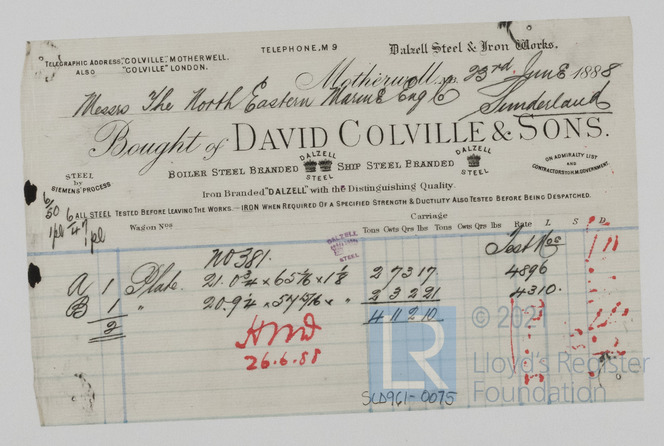 TELEPHONE, M 9
Dalzell Steel & Iron Works.
TELEGRAPHIC ADDRESS, "COLVILLE", MOTHERWELL.
ALSO "COLVILLE" LONDON.
Motherwell, 23rd June 1888
Messrs The North Eastern Marine Eng Co Sunderland
Bought of DAVID COLVILLE & SONS.
BOILER STEEL BRANDED DALZELL STEEL SHIP STEEL BRANDED DALZELL STEEL
STEEL by SIEMENS' PROCESS
ON ADMIRALTY LIST AND CONTRACTORS TO H.M. GOVERNMENT.
Iron Branded "DALZELL" with the Distinguishing Quality.
ALL STEEL TESTED BEFORE LEAVING THE WORKS.—IRON WHEN REQUIRED OF A SPECIFIED STRENGTH & DUCTILITY ALSO TESTED BEFORE BEING DESPATCHED.
6/50 1pl
6/47 1pl
Wagon Nos
Carriage
Tons Cwts Qrs lbs Tons Cwts Qrs lbs Rate L S D
DALZELL STEEL
No 381. Test Nos
A 1 Plate 21.0 3/4 × 65 5/16 × 1 1/8 2 7 3 17 4896
B 1 " 20.9 1/4 × 57 5/16 × " 2 3 2 21 4310.
2 4 11 2 10
26.6.88
© 2021
LR
Lloyd's Register
Foundation
SLD961-0075